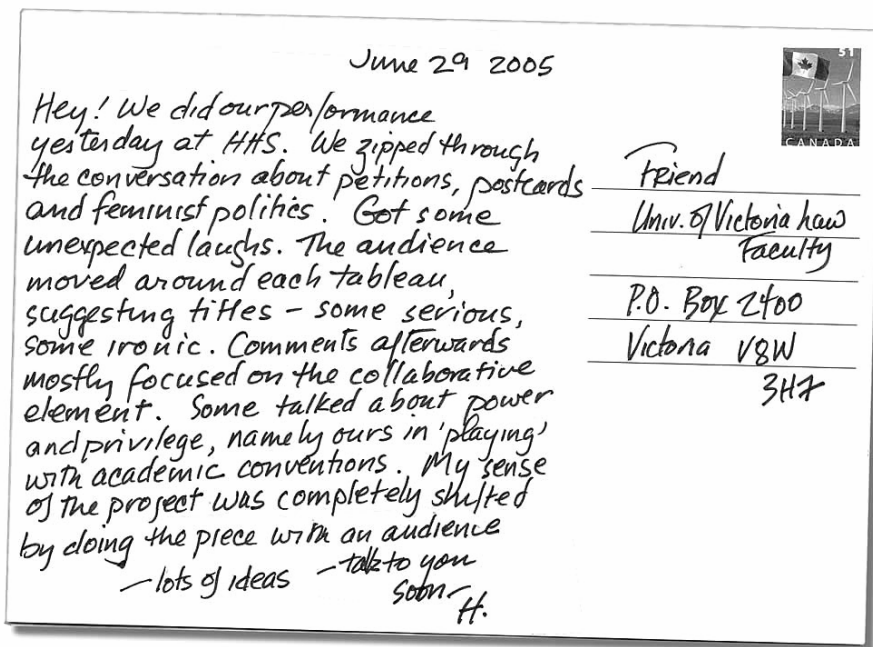 June 29 2005
Hey! We did our performance
yesterday at HHS. We zipped through
the conversation about petitions, postcards
and feminist politics. Got some
unexpected laughs. The audience
moved around each tableau,
suggesting titles – some serious,
some ironic. Comments afterwards
mostly focused on the collaborative
element. Some talked about power
and privilege, namely ours in 'playing'
with academic conventions. My sense
of the project was completely shifted
by doing the piece with an audience
– lots of ideas – talk to you
soon –
H.
$1
CANADA
Friend
Univ. of Victoria Law
Faculty
P.O. Box 2400
Victoria V8W
3H7